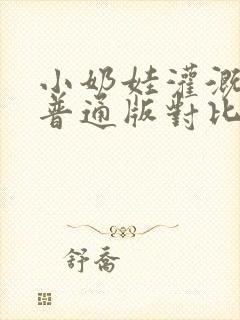 小奶娃灌溉
普通版對比
舒喬